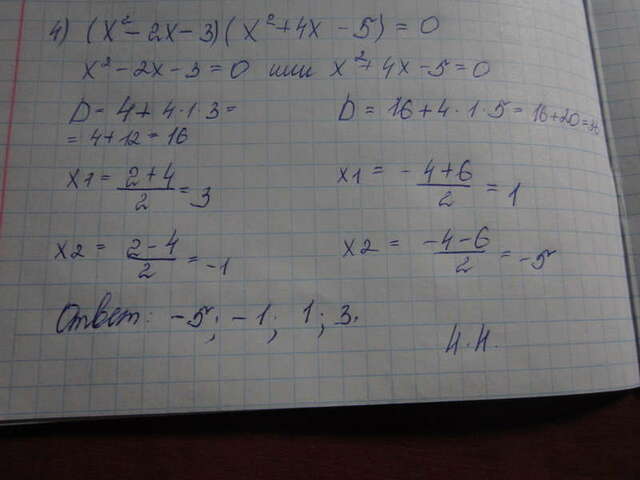 4) (x² - 2x - 3)(x² + 4x - 5) = 0
x² - 2x - 3 = 0 или x² + 4x - 5 = 0
D = 4 + 4 · 1 · 3 = D = 16 + 4 · 1 · 5 = 16 + 20 = 36
= 4 + 12 = 16
x1 = (2 + 4)/2 = 3 x1 = (-4 + 6)/2 = 1
x2 = (2 - 4)/2 = -1 x2 = (-4 - 6)/2 = -5
Ответ: -5; -1; 1; 3.
Н.Н.